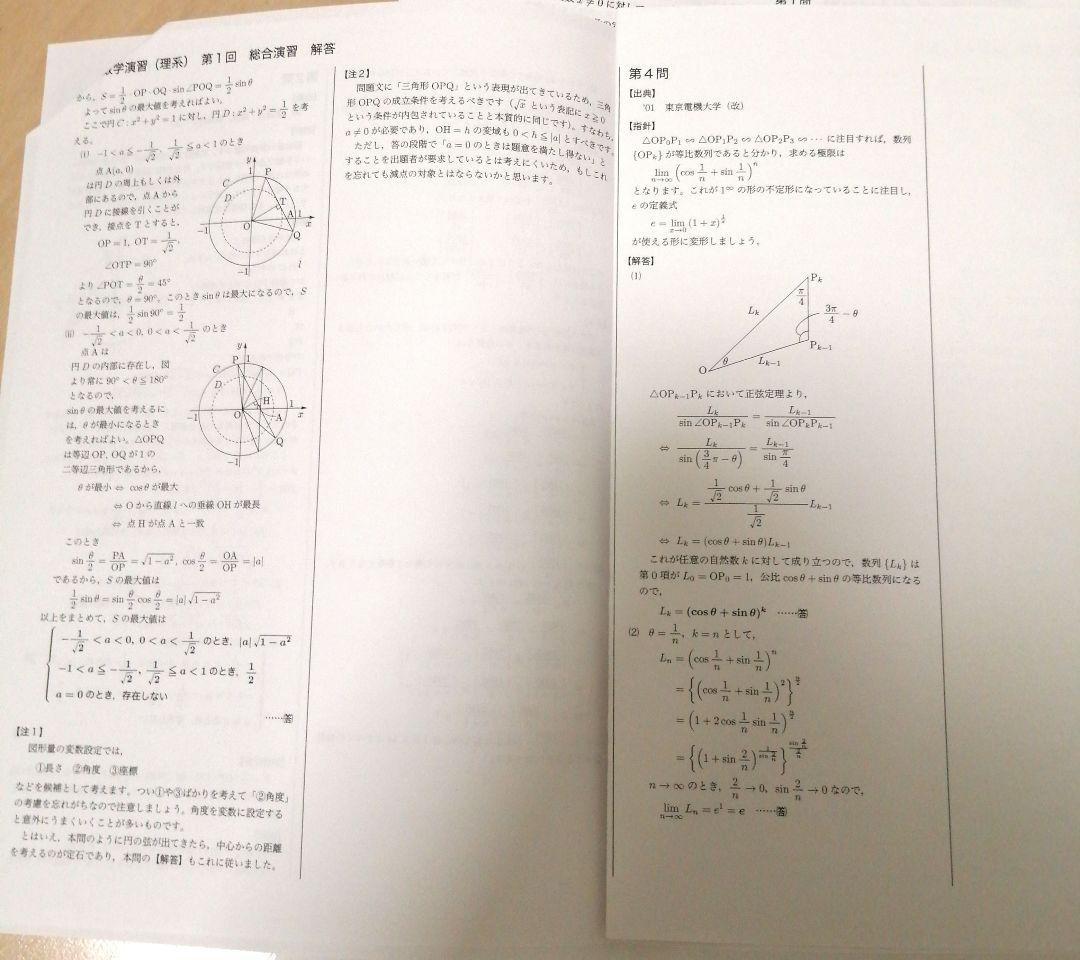 学演習（理系） 第1回 総合演習 解答
から，S = 1/2 · OP · OQ · sin∠POQ = 1/2 sin θ
よって sin θ の最大値を考えればよい．
ここで円 C : x² + y² = 1 に対し，円 D : x² + y² = 1/2 を考
える．
(i) −1 < a ≦ −1/√2, 1/√2 ≦ a < 1 のとき
点 A(a, 0)
は円 D の周上もしくは外
部にあるので，点 A から
円 D に接線を引くことが
でき，接点を T とすると，
OP = 1, OT = 1/√2,
∠OTP = 90°
より ∠POT = θ/2 = 45°
となるので，θ = 90°．このとき sin θ は最大になるので，S
の最大値は，1/2 sin 90° = 1/2
y
1
P
C
D
T
A
1
O
Q
x
−1
−1
l
(ii) −1/√2 < a < 0, 0 < a < 1/√2 のとき
点 A は
円 D の内部に存在し，図
より常に 90° < θ ≦ 180°
となるので，
sin θ の最大値を考えるに
は，θ が最小になるとき
を考えればよい．△OPQ
は等辺 OP, OQ が 1 の
二等辺三角形であるから，
y
P
1
C
D
H
O
A
1
x
Q
−1
−1
θ が最小 ⇔ cos θ が最大
⇔ O から直線 l への垂線 OH が最長
⇔ 点 H が点 A と一致
このとき
sin θ/2 = PA/OP = √(1 − a²), cos θ/2 = OA/OP = |a|
であるから，S の最大値は
1/2 sin θ = sin θ/2 cos θ/2 = |a|√(1 − a²)
以上をまとめて，S の最大値は
−1/√2 < a < 0, 0 < a < 1/√2 のとき，|a|√(1 − a²)
−1 < a ≦ −1/√2, 1/√2 ≦ a < 1 のとき，1/2
a = 0 のとき，存在しない
……答
【注1】
図形量の変数設定では，
①長さ ②角度 ③座標
などを候補として考えます．つい①や③ばかりを考えて「②角度」
の考慮を忘れがちなので注意しましょう．角度を変数に設定する
と意外にうまくいくことが多いものです．
とはいえ，本問のように円の弦が出てきたら，中心からの距離
を考えるのが定石であり，本問の【解答】もこれに従いました．
【注2】
問題文に「三角形 OPQ」という表現が出てきているため，三角
形 OPQ の成立条件を考えるべきです（√x という表記に x ≧ 0
という条件が内包されていることと本質的に同じです）．すなわち，
a ≠ 0 が必要であり，OH = h の変域も 0 < h ≦ |a| とすべきです．
ただし，答の段階で「a = 0 のときは題意を満たし得ない」と
することを出題者が要求しているとは考えにくいため，もしこれ
を忘れても減点の対象とはならないかと思います．
第4問
【出典】
'01 東京電機大学（改）
【指針】
△OP₀P₁ ∽ △OP₁P₂ ∽ △OP₂P₃ ∽ ⋯ に注目すれば，数列
{OPₖ} が等比数列であると分かり，求める極限は
lim_{n→∞} (cos 1/n + sin 1/n)ⁿ
となります．これが 1^∞ の形の不定形になっていることに注目し，
e の定義式
e = lim_{x→0} (1 + x)^{1/x}
が使える形に変形しましょう．
【解答】
(1)
Pₖ
π/4
Lₖ
3π/4 − θ
Pₖ₋₁
Lₖ₋₁
θ
O
△OPₖ₋₁Pₖ において正弦定理より，
Lₖ/sin∠OPₖ₋₁Pₖ = Lₖ₋₁/sin∠OPₖPₖ₋₁
⇔ Lₖ/sin(3/4 π − θ) = Lₖ₋₁/sin π/4
⇔ Lₖ = (1/√2 cos θ + 1/√2 sin θ)/(1/√2) Lₖ₋₁
⇔ Lₖ = (cos θ + sin θ)Lₖ₋₁
これが任意の自然数 k に対して成り立つので，数列 {Lₖ} は
第 0 項が L₀ = OP₀ = 1，公比 cos θ + sin θ の等比数列になる
ので，
Lₖ = (cos θ + sin θ)ᵏ ……答
(2) θ = 1/n, k = n として，
Lₙ = (cos 1/n + sin 1/n)ⁿ
= {(cos 1/n + sin 1/n)²}^{n/2}
= (1 + 2 cos 1/n sin 1/n)^{n/2}
= {(1 + sin 2/n)^{1/sin 2/n}}^{(sin 2/n)/(2/n)}
n → ∞ のとき，2/n → 0, sin 2/n → 0 なので，
lim_{n→∞} Lₙ = e¹ = e ……答